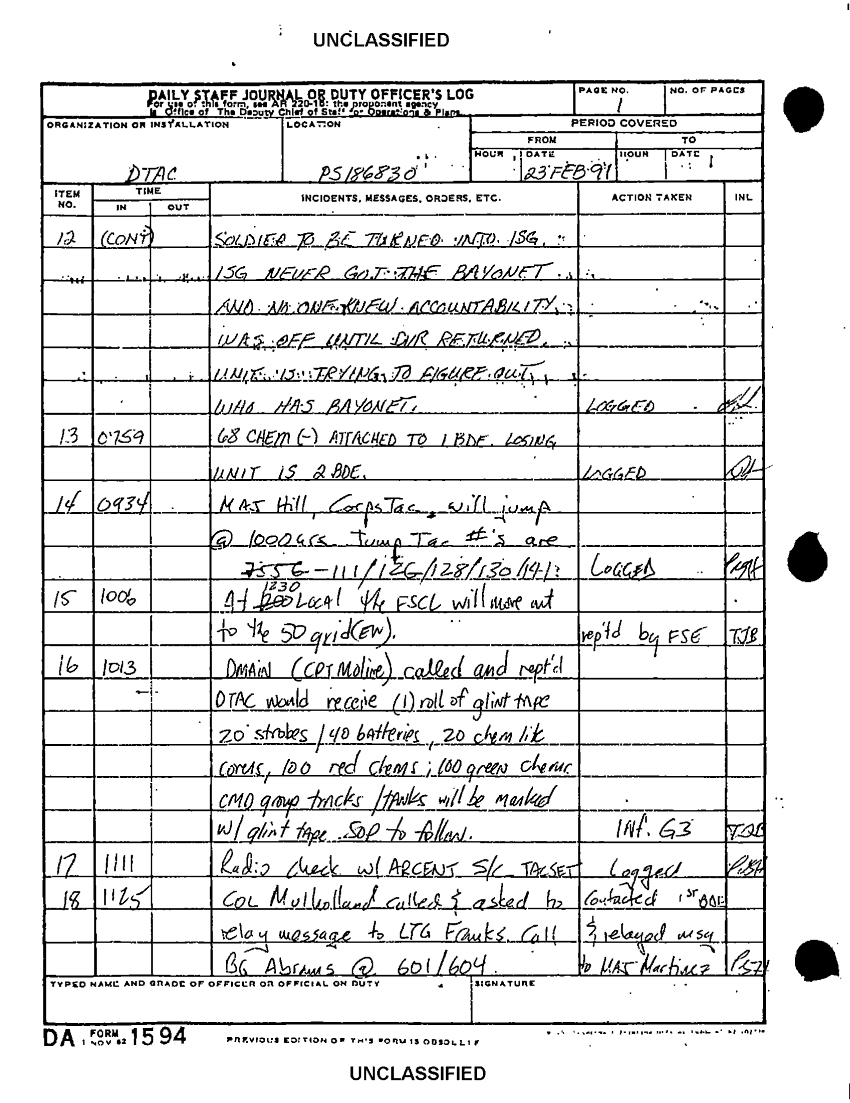 UNCLASSIFIED
DAILY STAFF JOURNAL OR DUTY OFFICER'S LOG
For use of this form, see AR 220-15; the proponent agency
is Office of The Deputy Chief of Staff for Operations & Plans.
PAGE NO.
1
NO. OF PAGES
ORGANIZATION OR INSTALLATION
DTAC
LOCATION
PS186830
PERIOD COVERED
FROM
TO
HOUR
DATE
23 FEB 91
HOUR
DATE
ITEM NO.
TIME
IN
OUT
INCIDENTS, MESSAGES, ORDERS, ETC.
ACTION TAKEN
INL
12 (CONT) SOLDIER TO BE TURNED INTO 1SG.
1SG NEVER GOT THE BAYONET
AND NO ONE KNEW ACCOUNTABILITY
WAS OFF UNTIL RETURNED.
UNIT IS TRYING TO FIGURE OUT
WHO HAS BAYONET. LOGGED
13 0759 68 CHEM (-) ATTACHED TO 1 BDE. LOSING
UNIT IS 2 BDE. LOGGED
14 0934 MAJ Hill, Corps Tac, will jump
@ 1000hrs Jump Tac #'s are
7556-111/126/128/130/141: LOGGED
15 1006 At 1230 LOCAL the FSCL will move out
to the 50 grid (EW). rep'td by FSE TJB
16 1013 DMAIN (CPT Moline) called and rept'd
DTAC would receive (1) roll of glint tape
20 strobes / 40 batteries, 20 chem lite
covers, 100 red chems; 100 green chems
CMD group tracks / TANKS will be marked
w/ glint tape. SOP to follow. INf. G3
17 1111 Radio check w/ ARCENT S/C TACSET Logged
18 1125 COL Mulholland called & asked to Contacted 1st BDE
relay message to LTG Franks. Call & relayed msg
BG Abrams @ 601/604. to MAJ Martinez
TYPED NAME AND GRADE OF OFFICER OR OFFICIAL ON DUTY
SIGNATURE
DA FORM 1594
1 NOV 62
PREVIOUS EDITION OF THIS FORM IS OBSOLETE
UNCLASSIFIED